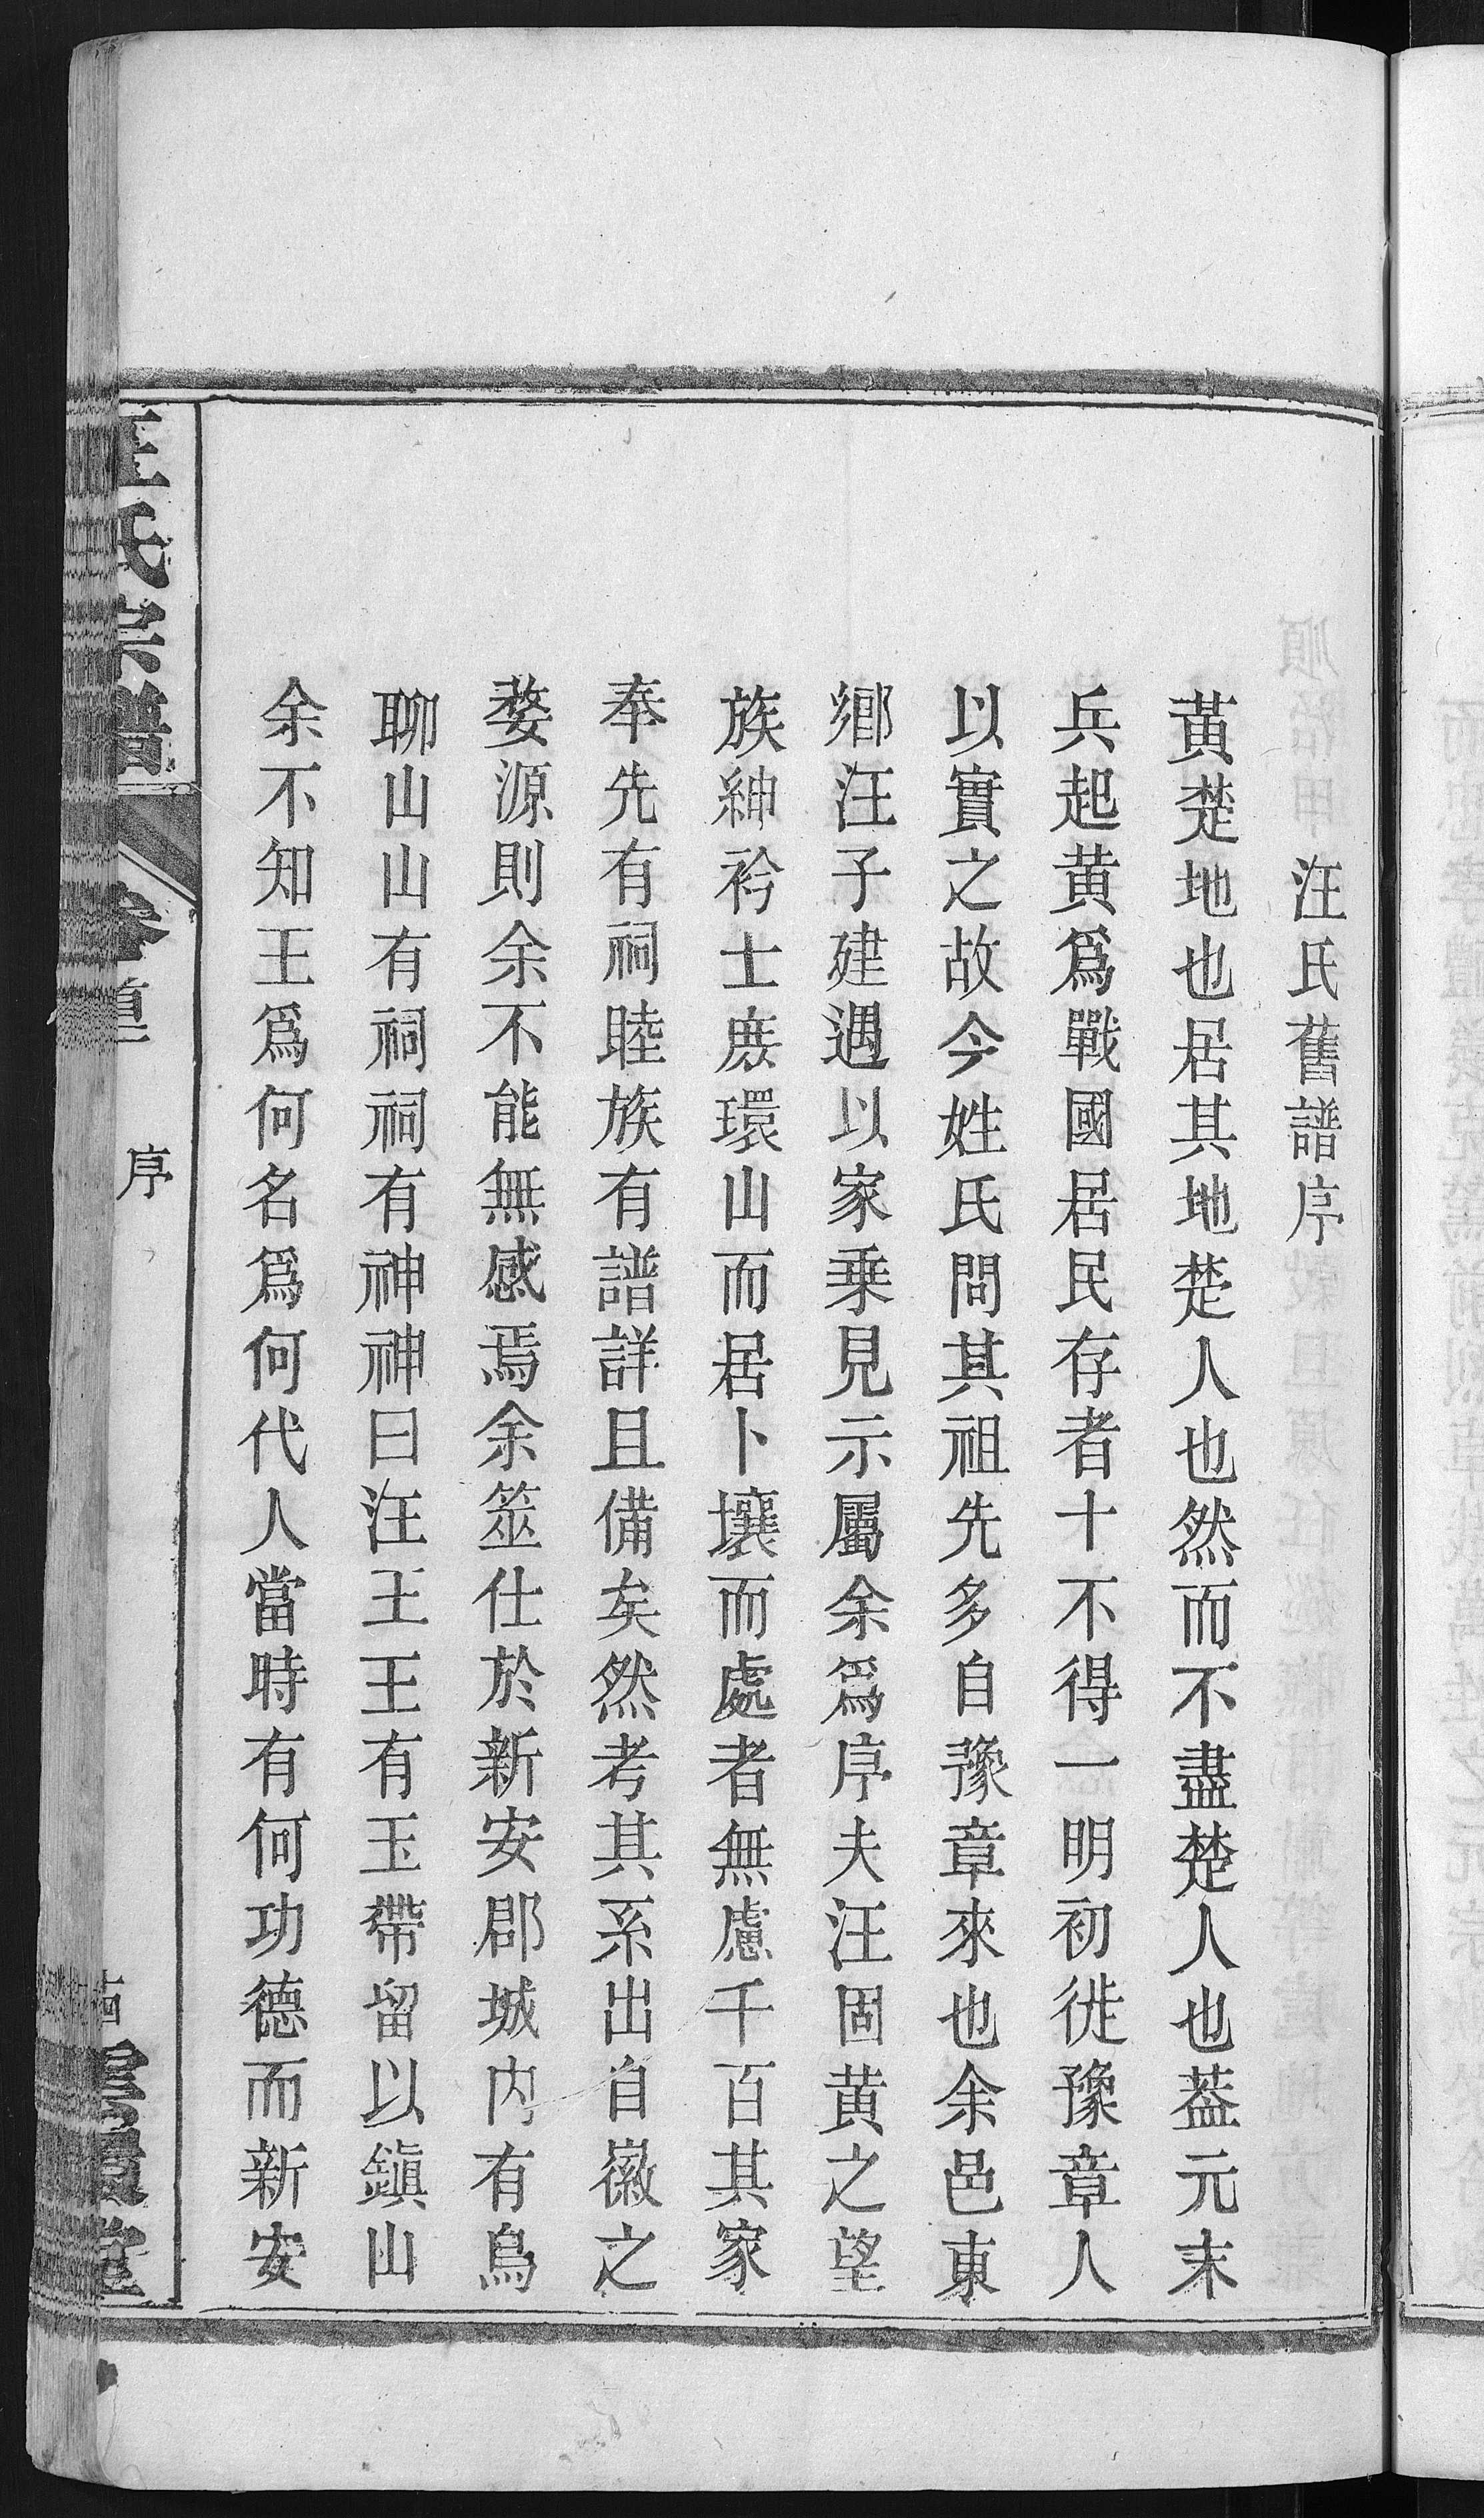 汪氏舊譜序
黃楚地也居其地楚人也然而不盡楚人也葢元末
兵起黃爲戰國居民存者十不得一明初徙豫章人
以實之故今姓氏問其祖先多自豫章來也余邑東
鄉汪子建遇以家乗見示屬余爲序夫汪固黃之望
族紳衿士庻環山而居卜壤而處者無慮千百其家
奉先有祠睦族有譜詳且備矣然考其系出自徽之
婺源則余不能無感焉余筮仕於新安郡城内有烏
聊山山有祠祠有神神曰汪王王有玉帶留以鎭山
余不知王爲何名爲何代人當時有何功德而新安
汪氏宗譜
卷首
序
堂